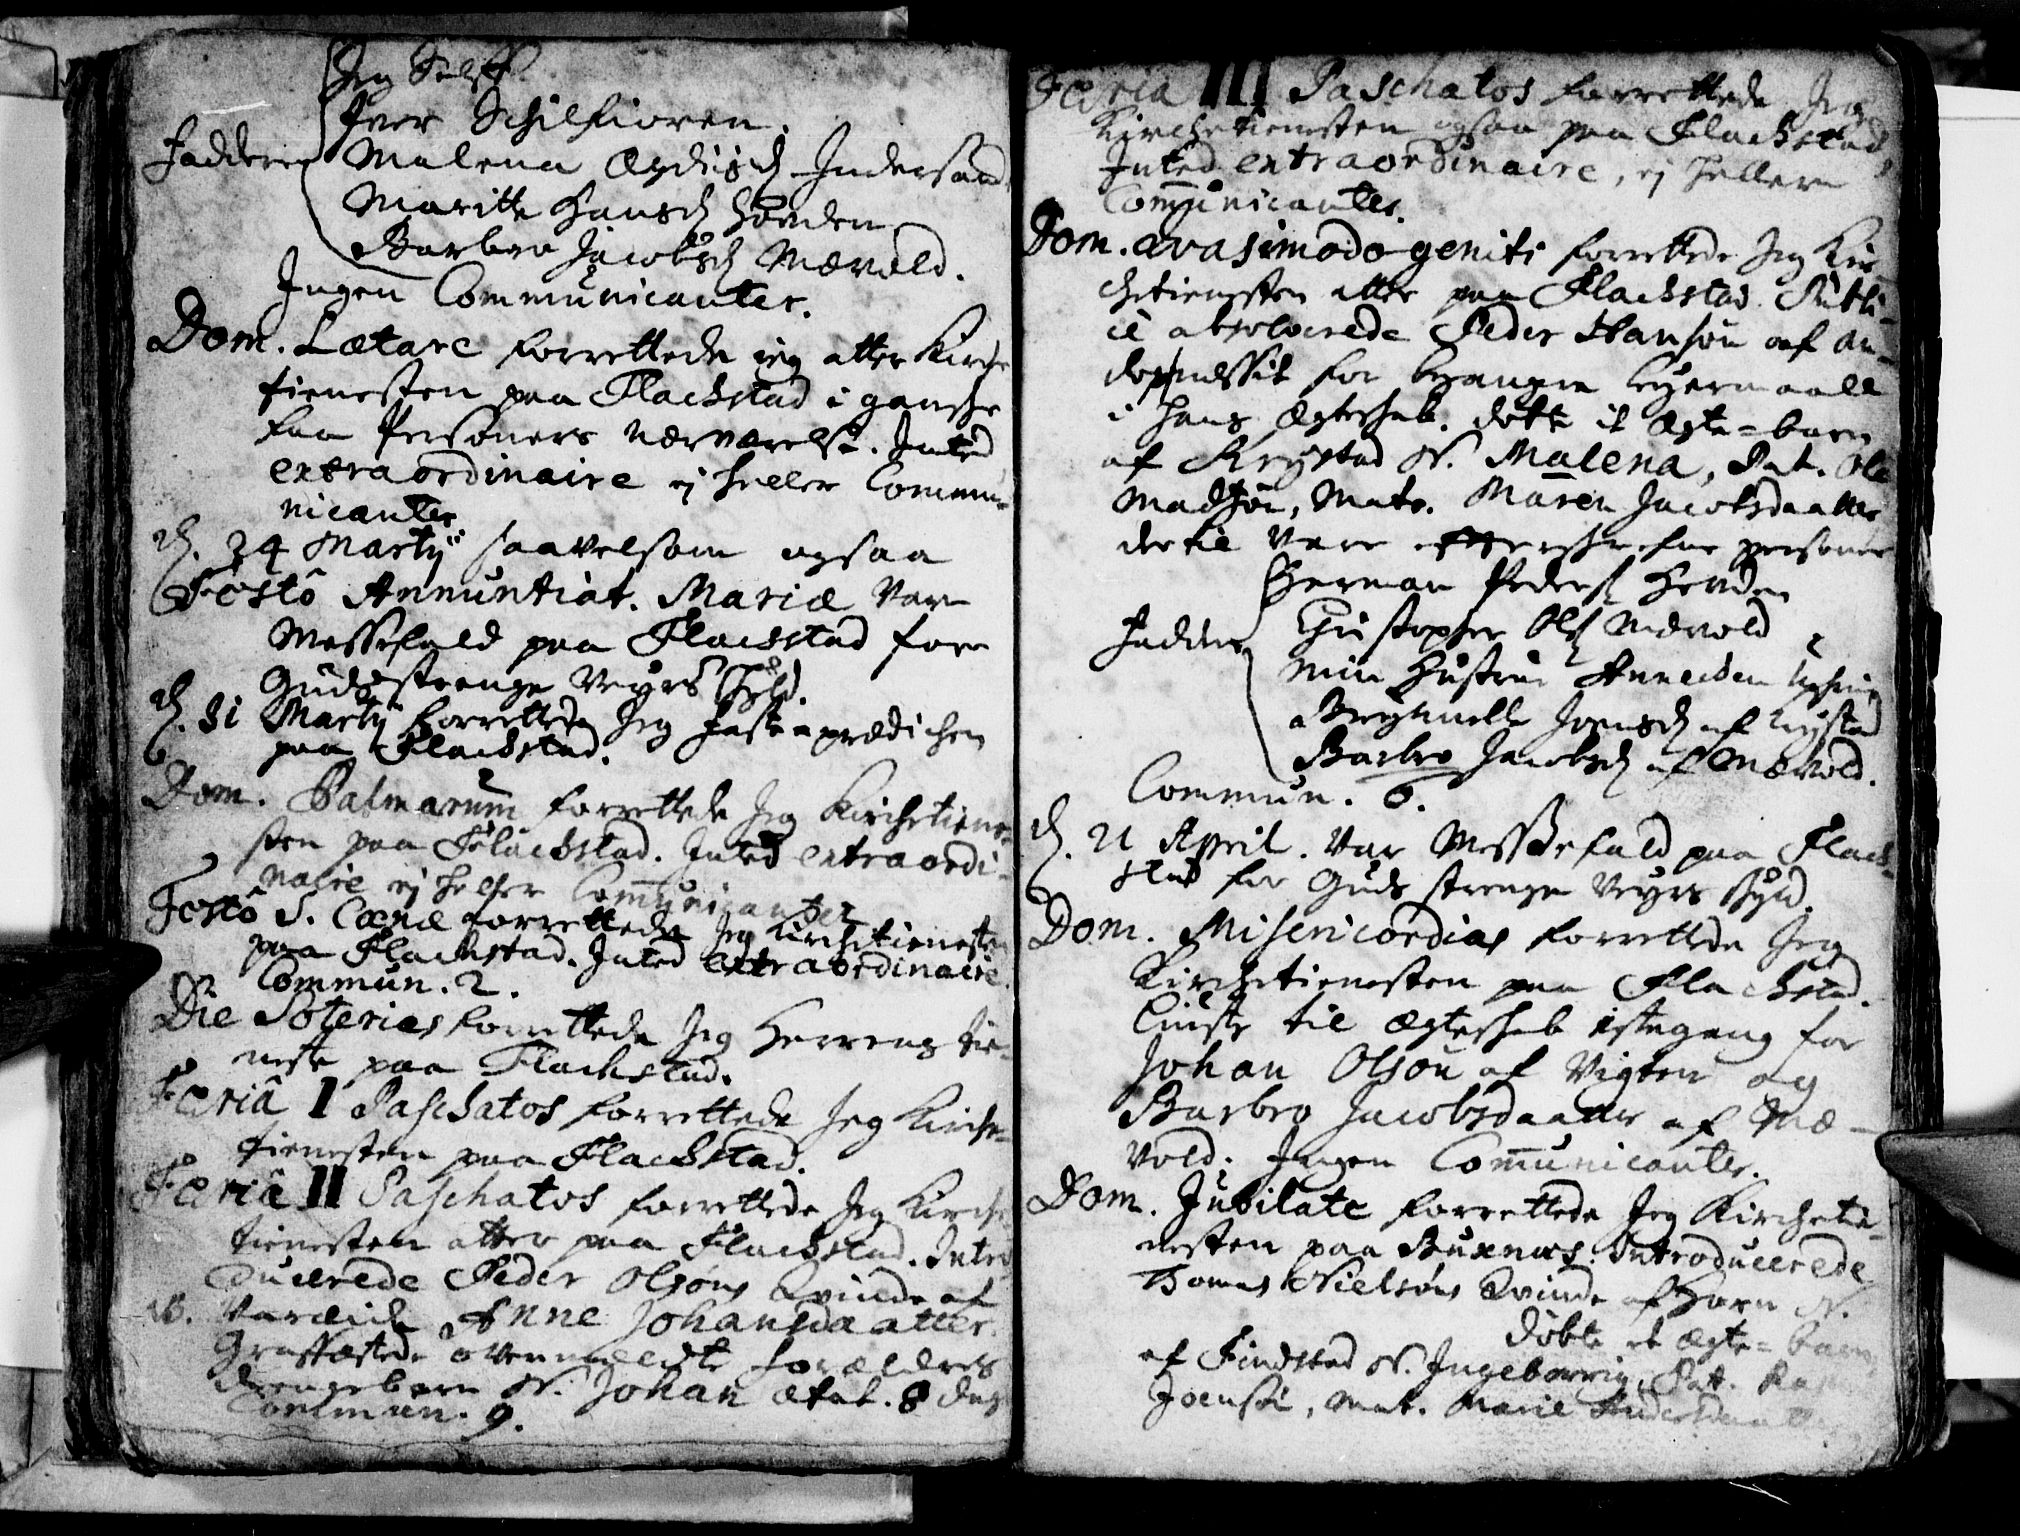 Jeg Selff.
Iver Schilfioren.
Faddere Malena Ægdiisd. Indersand
Maritte Hansd. Hovden
Barbro Jacobsd. Nævold.
Ingen Communicanter.
Dom. Lætare forrettede jeg atter Kirche
tienesten paa Flachstad i gansche
faa Personers nærværelse. Inted
extraordinaire ej heller Commu-
nicanter.
d. 24 Martij saavelsom ogsaa
Festô Annuntiat. Mariæ var
Messefald paa Flachstad for
Guds strenge Veyrs skyld.
d. 31 Martij forrettede Jeg fasteprædichen
paa Flachstad.
Dom. Palmarum forrettede Jeg Kirchetiene-
sten paa Flachstad. Inted extraordi-
naire ej heller Communicanter
Festô S. Cænæ forrettede Jeg Kirchetienesten
paa Flachstad. Inted extraordinaire.
Commun. 2.
Die Soterias forrettede Jeg Herrens tie-
neste paa Flachstad.
Feriâ I Paschatos forrettede Jeg Kirche-
tienesten paa Flachstad.
Feriâ II Paschatos forrettede Jeg Kirche
tienesten atter paa Flachstad. Intro
ducerede Peder Olsøns Qvinde af
Vareide Anne Johansdaatter.
N. Graffæstede ovenmeldte forældres
drengebarn N. Johan ætat. 8 dage
Commun. 9.
Feria III Paschatos forrettede Jeg
Kirchetienesten ogsaa paa Flachstad,
Inted extraordinaire, ej hellere
Communicanter.
Dom. Qvasimodo geniti forrettede Jeg Kir-
chetienesten atter paa Flachstad. Publi-
cè absolverede Peder Hansøn af
for begangen leyermaall
i hans Ægteschab. døbte it Ægte-barn
af Krystad N. Malena, Pat. Ole
Madsøn, Matr. Maren Jacobsdaatter
dertil vare efterschrefne personer
Herman Peders. Hovden
Fadder Christopher Ols. Nævold
min Hustrue Anne
Joensd. af Krystad
Barbro Jacobsd. af Nævold.
Commun. 6.
d. 21 April. var Messefald paa Flach-
stad for Guds strenge Veyrs skyld.
Dom. Misericordias forrettede Jeg
Kirchetienesten paa Flachstad.
Liuste til Ægteschab 1ste gang for
Johan Olsøn af Vigten og
Barbro Jacobsdaatter af Næ-
vold. Ingen Communicanter.
Dom. Jubilate forrettede Jeg Kirchetie-
nesten paa Buxnæs. Introducerede
Thomas Nielsøns Qvinde af Horn N.
Døbte et ægte-barn
af Findstad N. Ingeborrig, Patr.
Joensøn, Mat. Marie Andersdaatter